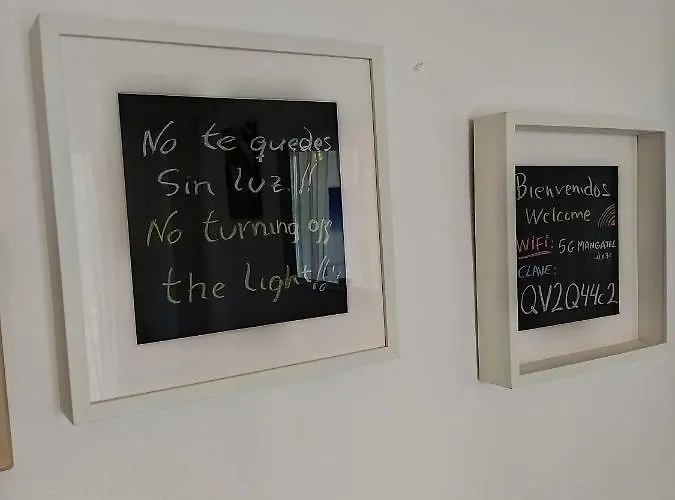 No te quedes
Sin luz.!!
No turning off
the Light!!
Bienvenidos
Welcome
WiFi: 5G MANGATEL
CLAVE:
QV2Q44c2